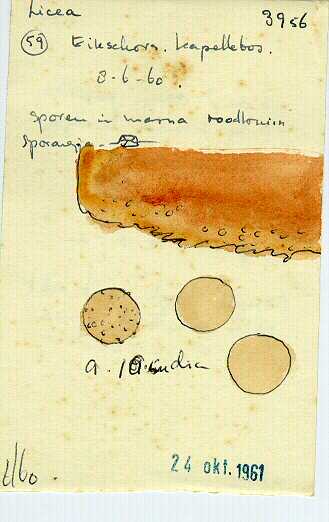 Licea 3956
59 Eikschors. Kapellebos.
8-6-60.
sporen in massa roodbruin
sporangia
9.
d/60.
24 okt. 1961